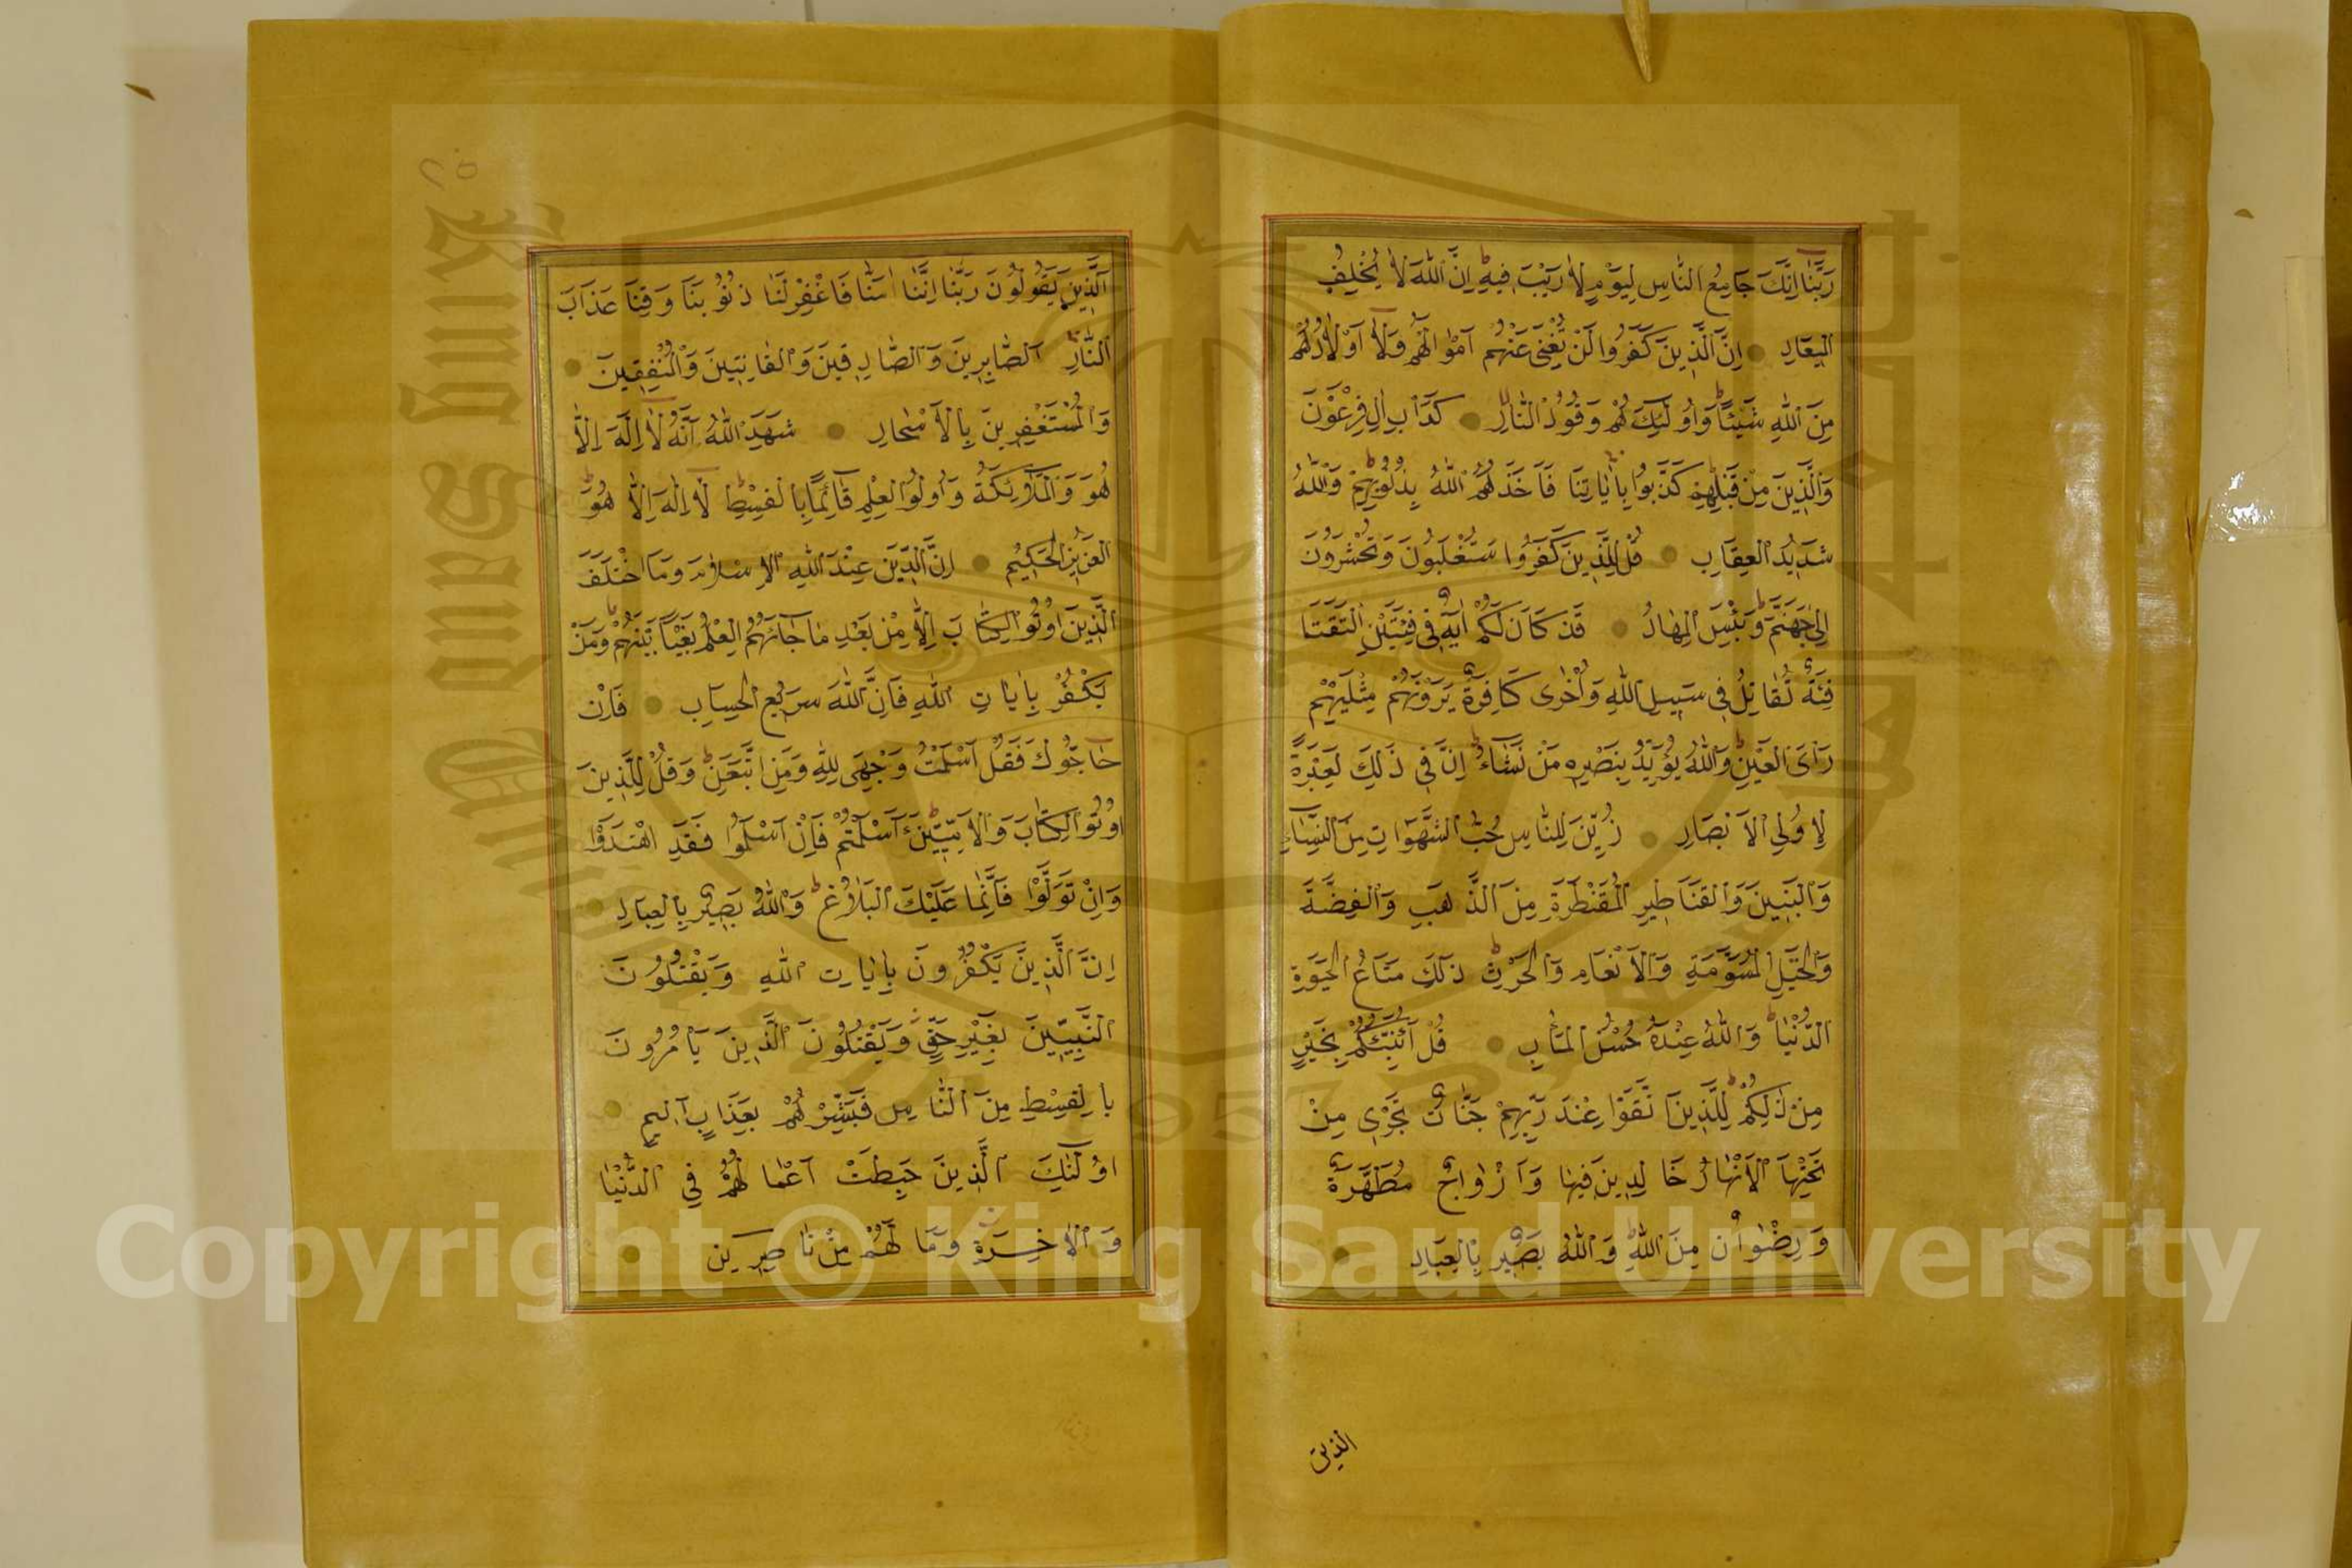 رَبَّنَا اِنَّكَ جَامِعُ النَّاسِ لِيَوْمٍ لَا رَيْبَ فِيهِ اِنَّ اللّٰهَ لَا يُخْلِفُ
الْمِيعَادِ اِنَّ الَّذِينَ كَفَرُوا لَنْ تُغْنِىَ عَنْهُمْ اَمْوَالُهُمْ وَلَا اَوْلَادُهُمْ
مِنَ اللّٰهِ شَيْئًا وَاُولٰئِكَ هُمْ وَقُودُ النَّارِ كَدَاْبِ اٰلِ فِرْعَوْنَ
وَالَّذِينَ مِنْ قَبْلِهِمْ كَذَّبُوا بِاٰيَاتِنَا فَاَخَذَهُمُ اللّٰهُ بِذُنُوبِهِمْ وَاللّٰهُ
شَدِيدُ الْعِقَابِ قُلْ لِلَّذِينَ كَفَرُوا سَتُغْلَبُونَ وَتُحْشَرُونَ
اِلٰى جَهَنَّمَ وَبِئْسَ الْمِهَادُ قَدْ كَانَ لَكُمْ اٰيَةٌ فِى فِئَتَيْنِ الْتَقَتَا
فِئَةٌ تُقَاتِلُ فِى سَبِيلِ اللّٰهِ وَاُخْرٰى كَافِرَةٌ يَرَوْنَهُمْ مِثْلَيْهِمْ
رَاْىَ الْعَيْنِ وَاللّٰهُ يُؤَيِّدُ بِنَصْرِهِ مَنْ يَشَاءُ اِنَّ فِى ذٰلِكَ لَعِبْرَةً
لِاُولِي الْاَبْصَارِ زُيِّنَ لِلنَّاسِ حُبُّ الشَّهَوَاتِ مِنَ النِّسَاءِ
وَالْبَنِينَ وَالْقَنَاطِيرِ الْمُقَنْطَرَةِ مِنَ الذَّهَبِ وَالْفِضَّةِ
وَالْخَيْلِ الْمُسَوَّمَةِ وَالْاَنْعَامِ وَالْحَرْثِ ذٰلِكَ مَتَاعُ الْحَيٰوةِ
الدُّنْيَا وَاللّٰهُ عِنْدَهُ حُسْنُ الْمَاٰبِ قُلْ اَؤُنَبِّئُكُمْ بِخَيْرٍ
مِنْ ذٰلِكُمْ لِلَّذِينَ اتَّقَوْا عِنْدَ رَبِّهِمْ جَنَّاتٌ تَجْرِى مِنْ
تَحْتِهَا الْاَنْهَارُ خَالِدِينَ فِيهَا وَاَزْوَاجٌ مُطَهَّرَةٌ
وَرِضْوَانٌ مِنَ اللّٰهِ وَاللّٰهُ بَصِيرٌ بِالْعِبَادِ
الذين
اَلَّذِينَ يَقُولُونَ رَبَّنَا اِنَّنَا اٰمَنَّا فَاغْفِرْ لَنَا ذُنُوبَنَا وَقِنَا عَذَابَ
النَّارِ اَلصَّابِرِينَ وَالصَّادِقِينَ وَالْقَانِتِينَ وَالْمُنْفِقِينَ
وَالْمُسْتَغْفِرِينَ بِالْاَسْحَارِ شَهِدَ اللّٰهُ اَنَّهُ لَا اِلٰهَ اِلَّا
هُوَ وَالْمَلَائِكَةُ وَاُولُوا الْعِلْمِ قَائِمًا بِالْقِسْطِ لَا اِلٰهَ اِلَّا هُوَ
الْعَزِيزُ الْحَكِيمُ اِنَّ الدِّينَ عِنْدَ اللّٰهِ الْاِسْلَامُ وَمَا اخْتَلَفَ
الَّذِينَ اُوتُوا الْكِتَابَ اِلَّا مِنْ بَعْدِ مَا جَاءَهُمُ الْعِلْمُ بَغْيًا بَيْنَهُمْ وَمَنْ
يَكْفُرْ بِاٰيَاتِ اللّٰهِ فَاِنَّ اللّٰهَ سَرِيعُ الْحِسَابِ فَاِنْ
حَاجُّوكَ فَقُلْ اَسْلَمْتُ وَجْهِىَ لِلّٰهِ وَمَنِ اتَّبَعَنِ وَقُلْ لِلَّذِينَ
اُوتُوا الْكِتَابَ وَالْاُمِّيِّينَ ءَاَسْلَمْتُمْ فَاِنْ اَسْلَمُوا فَقَدِ اهْتَدَوْا
وَاِنْ تَوَلَّوْا فَاِنَّمَا عَلَيْكَ الْبَلَاغُ وَاللّٰهُ بَصِيرٌ بِالْعِبَادِ
اِنَّ الَّذِينَ يَكْفُرُونَ بِاٰيَاتِ اللّٰهِ وَيَقْتُلُونَ
النَّبِيِّينَ بِغَيْرِ حَقٍّ وَيَقْتُلُونَ الَّذِينَ يَاْمُرُونَ
بِالْقِسْطِ مِنَ النَّاسِ فَبَشِّرْهُمْ بِعَذَابٍ اَلِيمٍ
اُولٰئِكَ الَّذِينَ حَبِطَتْ اَعْمَالُهُمْ فِي الدُّنْيَا
وَالْاٰخِرَةِ وَمَا لَهُمْ مِنْ نَاصِرِينَ
Copyright © King Saud University
King Saud University
1957